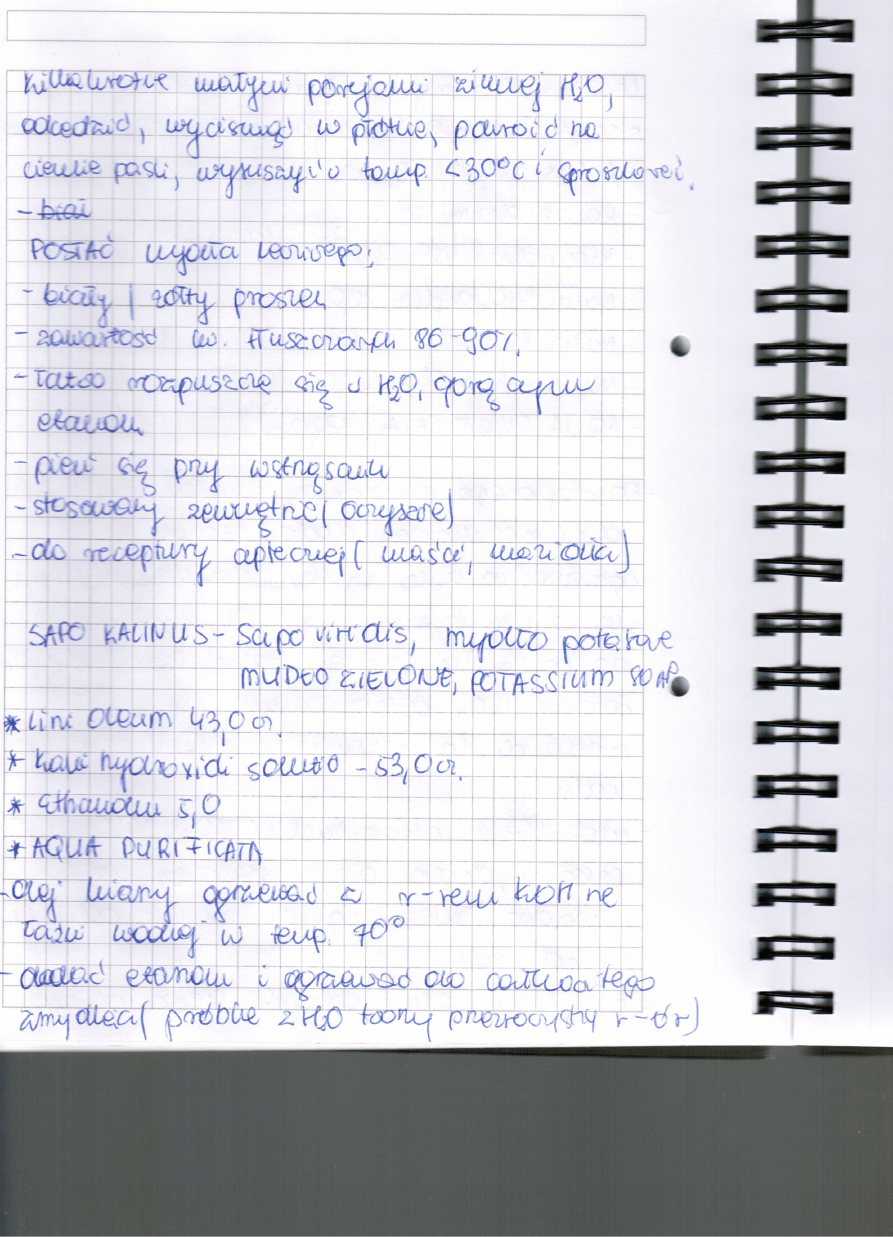 kilkakrotnie małymi porcjami zimnej H₂O,
odcedzić, wycisnąć w płótnie, pokroić na
cienkie paski, wysuszyć w temp. <30°C i sproszkować.
- biał
POSTAĆ mydła leczniczego:
- biały / żółty proszek
- zawartość kw. tłuszczowych 86-90%.
- łatwo rozpuszcza się w H₂O, gorącym
etanolu
- pieni się przy wstrząsaniu
- stosowany zewnętrznie (oczyszcz)
- do receptury aptecznej (maści, mazidła)
SAPO KALINUS - Sapo viridis, mydło potasowe
MYDŁO ZIELONE, POTASSIUM SOAP
* Lini Oleum 43,0 cz.
* Kalii hydroxidi solutio - 53,0 cz.
* Ethanolu 5,0
* AQUA PURIFICATA
- olej lniany ogrzewać z r-rem KOH na
łaźni wodnej w temp. 70°
- dodać etanolu i ogrzewać do całkowitego
zmydlenia (próbka z H₂O tworzy przezroczysty r-ór)